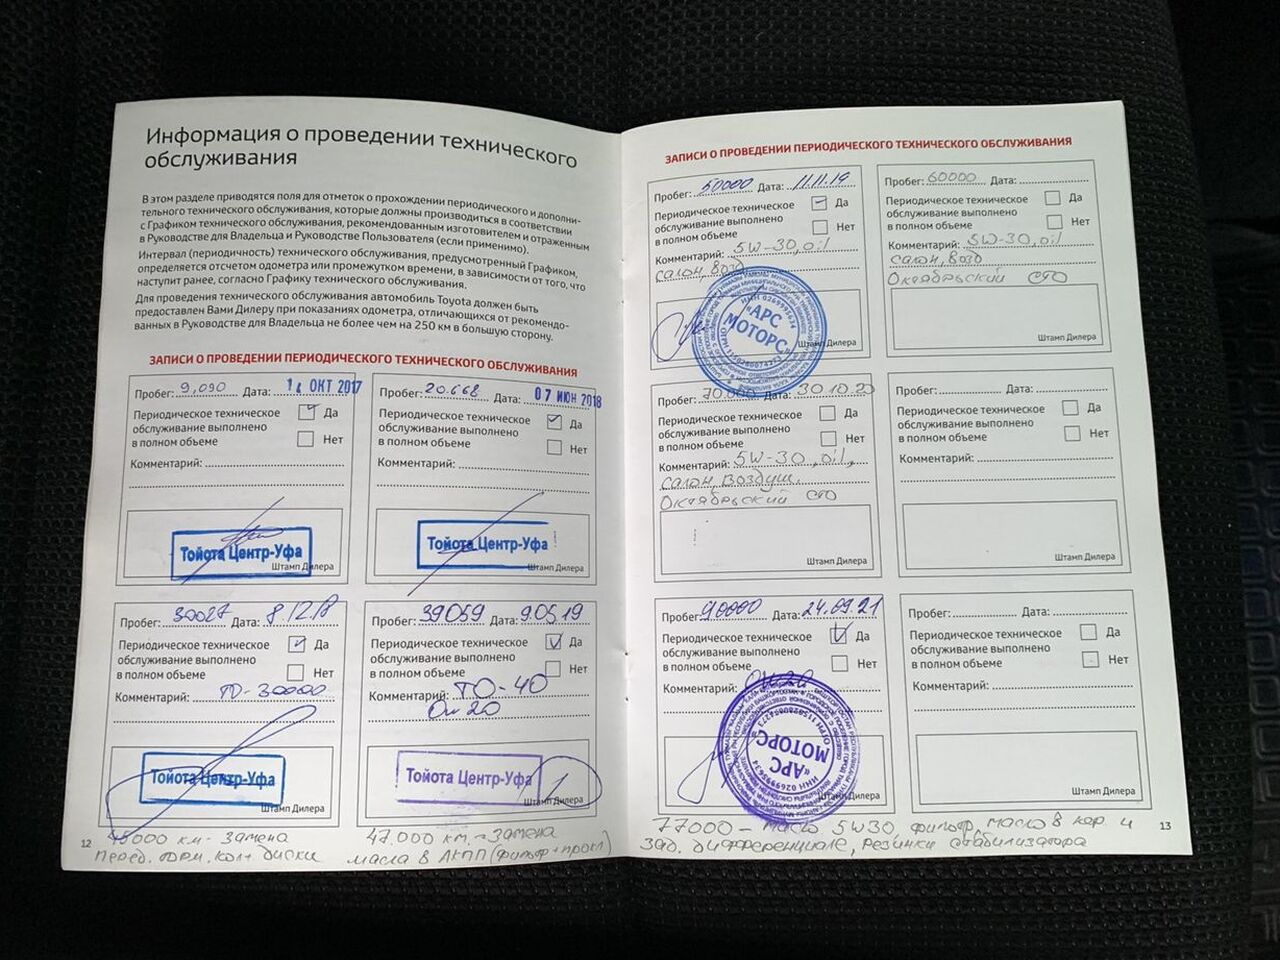 Информация о проведении технического
обслуживания
В этом разделе приводятся поля для отметок о прохождении периодического и дополни-
тельного технического обслуживания, которые должны производиться в соответствии
с Графиком технического обслуживания, рекомендованным изготовителем и отраженным
в Руководстве для Владельца и Руководстве Пользователя (если применимо).
Интервал (периодичность) технического обслуживания, предусмотренный Графиком,
определяется отсчетом одометра или промежутком времени, в зависимости от того, что
наступит ранее, согласно Графику технического обслуживания.
Для проведения технического обслуживания автомобиль Toyota должен быть
предоставлен Вами Дилеру при показаниях одометра, отличающихся от рекомендо-
ванных в Руководстве для Владельца не более чем на 250 км в большую сторону.
ЗАПИСИ О ПРОВЕДЕНИИ ПЕРИОДИЧЕСКОГО ТЕХНИЧЕСКОГО ОБСЛУЖИВАНИЯ
Пробег: 9,090 Дата: ОКТ 2017
Периодическое техническое
обслуживание выполнено
в полном объеме
Да
Нет
Комментарий:
Тойота Центр-Уфа
Штамп Дилера
Пробег: 20.668 Дата: 07 ИЮН 2018
Периодическое техническое
обслуживание выполнено
в полном объеме
Да
Нет
Комментарий:
Тойота Центр-Уфа
Штамп Дилера
Пробег: 30027 Дата: 8.12.18
Периодическое техническое
обслуживание выполнено
в полном объеме
Да
Нет
Комментарий: ТО-30000
Тойота Центр-Уфа
Штамп Дилера
Пробег: 39059 Дата: 9.05.19
Периодическое техническое
обслуживание выполнено
в полном объеме
Да
Нет
Комментарий: ТО-40
0w20
Тойота Центр-Уфа
Штамп Дилера
км - замена
торм. диски
47.000 км. - замена
масла в АКПП (фильтр+прокл)
12
ЗАПИСИ О ПРОВЕДЕНИИ ПЕРИОДИЧЕСКОГО ТЕХНИЧЕСКОГО ОБСЛУЖИВАНИЯ
Пробег: 50000 Дата: 11.11.19
Периодическое техническое
обслуживание выполнено
в полном объеме
Да
Нет
Комментарий: 5W-30, oil
салон, возд
«АРС
МОТОРС»
ИНН 0269995634
Штамп Дилера
Пробег: 60000 Дата:
Периодическое техническое
обслуживание выполнено
в полном объеме
Да
Нет
Комментарий: 5W-30, oil
салон, возд
Октябрьский СТО
Штамп Дилера
Пробег: 70.000 Дата: 30.10.20
Периодическое техническое
обслуживание выполнено
в полном объеме
Да
Нет
Комментарий: 5W-30, oil,
салон, воздуш.
Октябрьский СТО
Штамп Дилера
Пробег: Дата:
Периодическое техническое
обслуживание выполнено
в полном объеме
Да
Нет
Комментарий:
Штамп Дилера
Пробег: 90000 Дата: 24.09.21
Периодическое техническое
обслуживание выполнено
в полном объеме
Да
Нет
Комментарий: 0w20
«АРС
МОТОРС»
ИНН 0269995634
Штамп Дилера
Пробег: Дата:
Периодическое техническое
обслуживание выполнено
в полном объеме
Да
Нет
Комментарий:
Штамп Дилера
77000 - масло 5W30, фильтр, масло в кор. и
зад. дифференциале, резинки стабилизатора
13